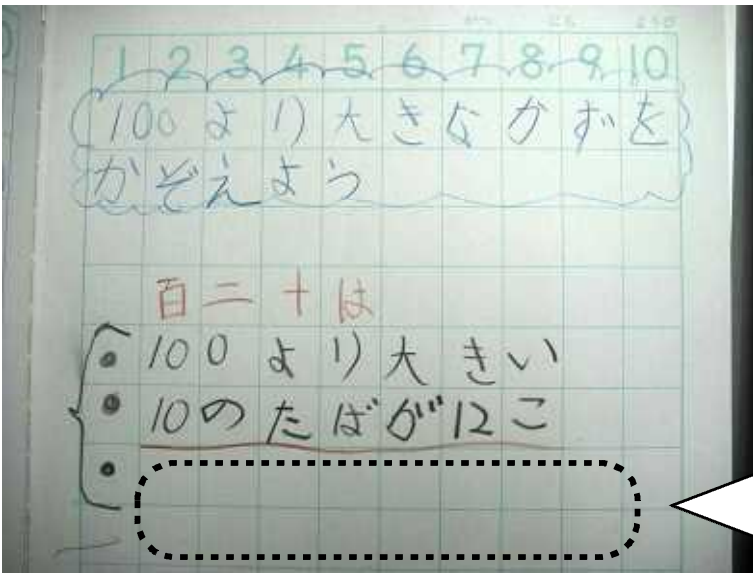 1 2 3 4 5 6 7 8 9 10
100より大きなかずを
かぞえよう
百二十は
100より大きい
10のたばが12こ